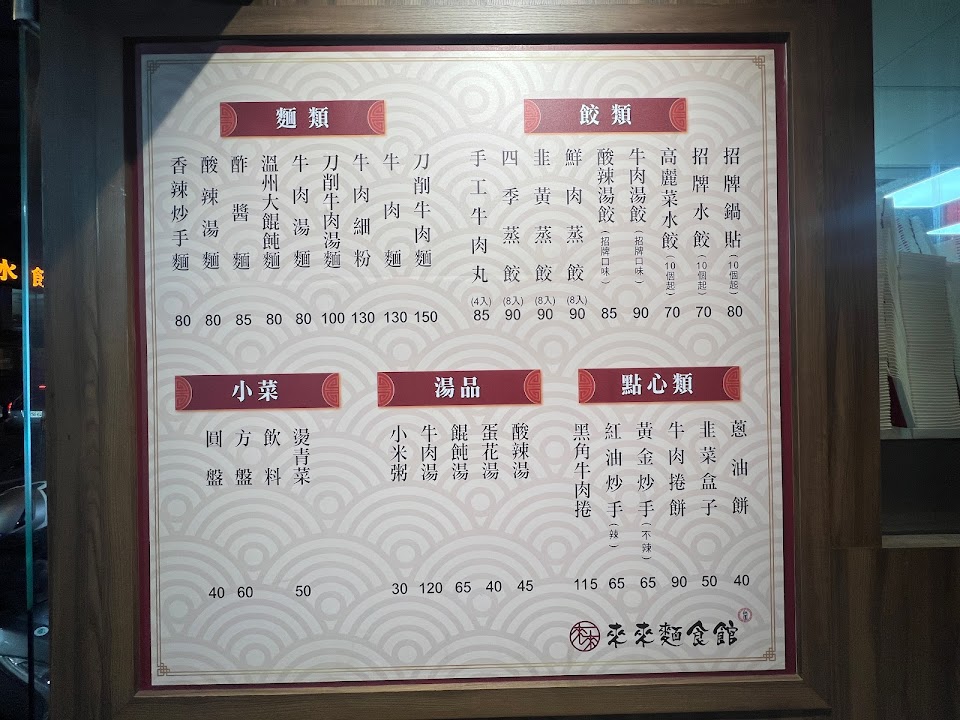 餃類
招牌鍋貼(10個起) 80
招牌水餃(10個起) 70
高麗菜水餃(10個起) 70
牛肉湯餃(招牌口味) 90
酸辣湯餃(招牌口味) 85
鮮肉蒸餃(8入) 90
韭黃蒸餃(8入) 90
四季蒸餃(8入) 90
手工牛肉丸(4入) 85
麵類
刀削牛肉麵 150
牛肉麵 130
牛肉細粉 130
刀削牛肉湯麵 100
牛肉湯麵 80
溫州大餛飩麵 80
酢醬麵 85
酸辣湯麵 80
香辣炒手麵 80
點心類
蔥油餅 40
韭菜盒子 50
牛肉捲餅 90
黃金炒手(不辣) 65
紅油炒手(辣) 65
黑角牛肉捲 115
湯品
酸辣湯 45
蛋花湯 40
餛飩湯 65
牛肉湯 120
小米粥 30
小菜
燙青菜 50
飲料
方盤 60
圓盤 40
來來麵食館
水